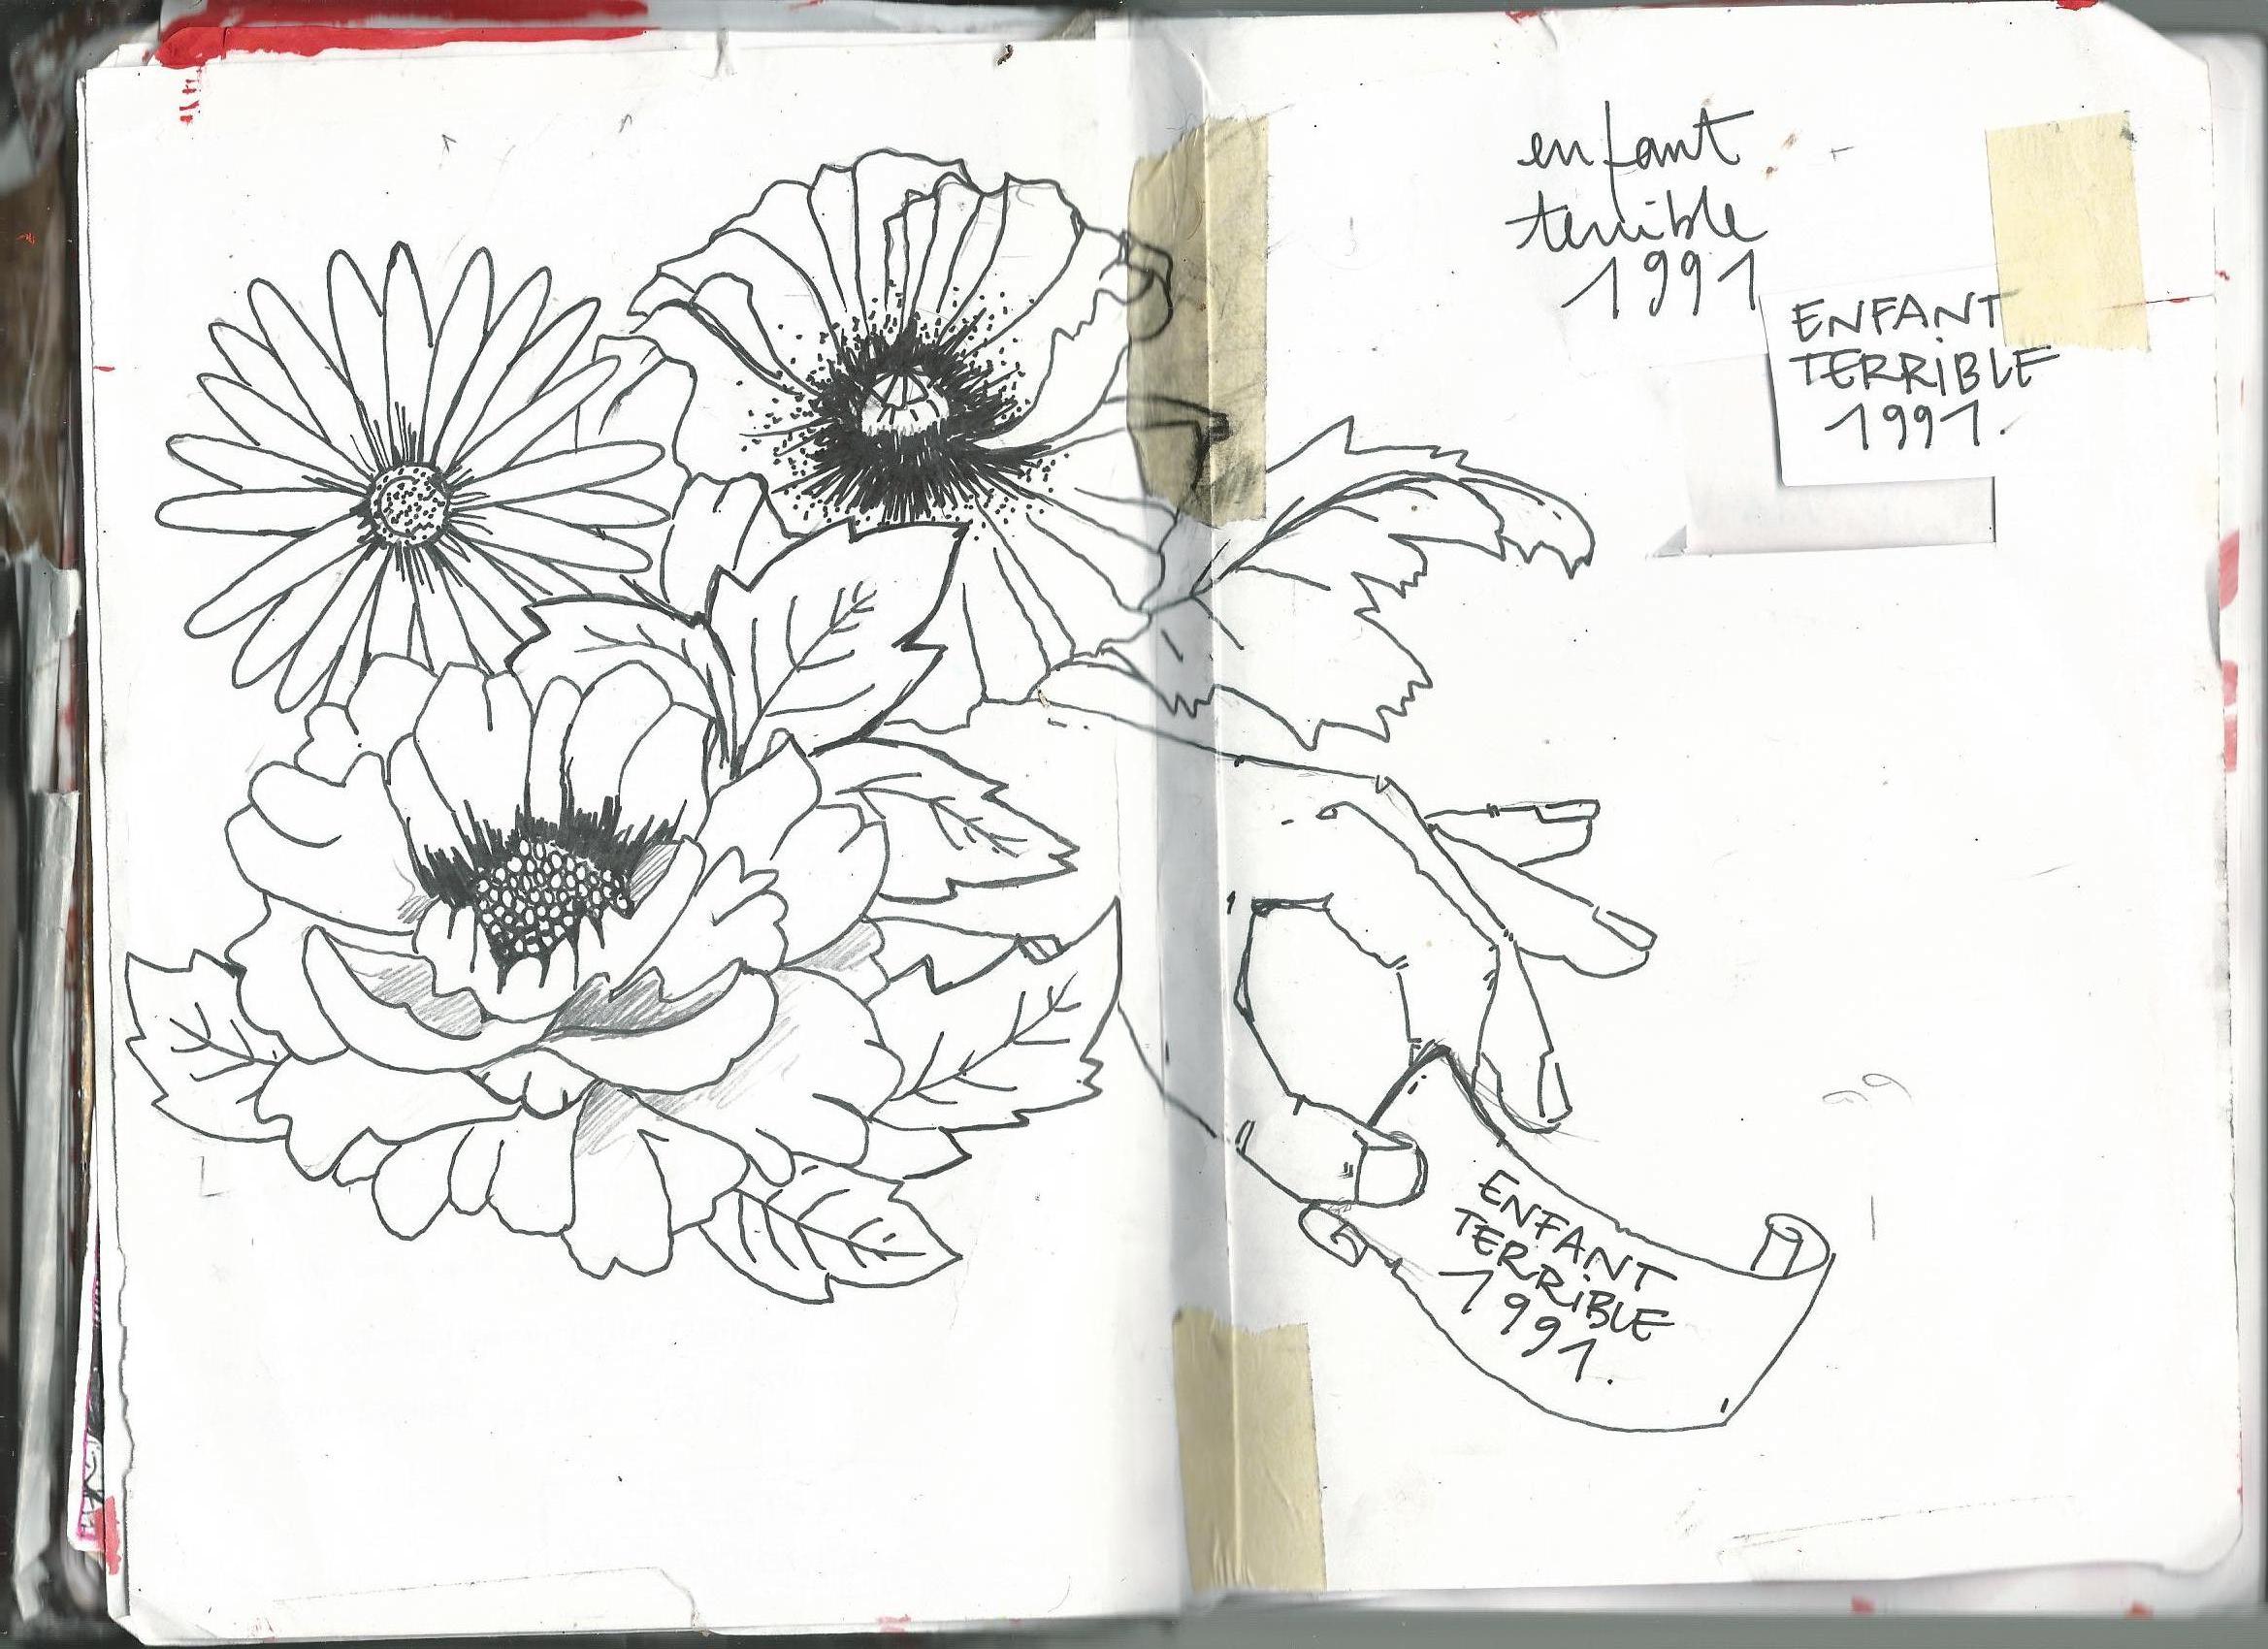 enfant
terrible
1991
ENFANT
TERRiBLE
1991.
ENFANT
TERRiBLE
1991.